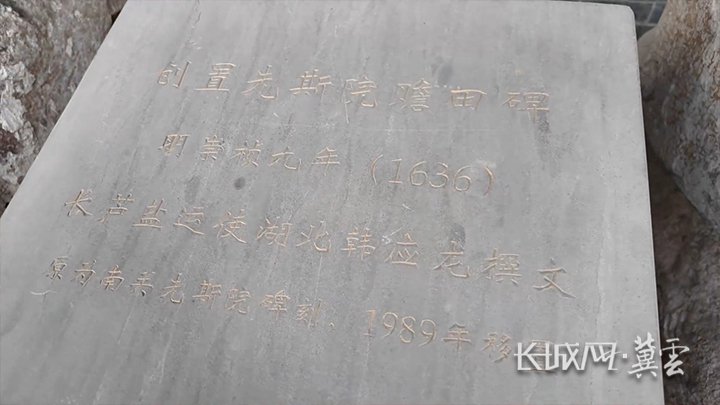 创置先斯院赡田碑
明崇祯九年（1636）
长芦盐运使湖北韩位龙撰文
原为南关先斯院碑刻，1989年移
长城网·冀雲